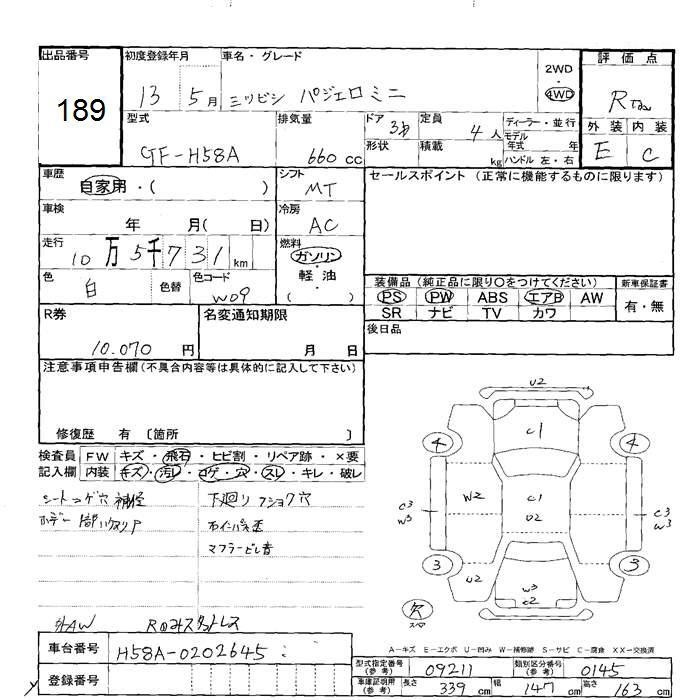 出品番号
189
初度登録年月
13 5月
車名・グレード
ミツビシ パジェロミニ
2WD
・
4WD
評価点
R
型式
GF-H58A
排気量
660 cc
ドア 3
形状
定員 4 人
積載 kg
ディーラー・並行
モデル
年式 年
ハンドル 左・右
外装 内装
E C
車歴
自家用・( )
シフト
MT
セールスポイント (正常に機能するものに限ります)
車検
年 月( 日)
冷房
AC
走行
10万5千731km
燃料
ガソリン
・
軽油
( )
色
白
色替
色コード
W09
装備品 (純正品に限り〇をつけてください)
PS PW ABS エアB AW
SR ナビ TV カワ
新車保証書
有・無
後日品
R券
10.070 円
名変通知期限
月 日
注意事項申告欄(不具合内容等は具体的に記入して下さい)
修復歴 有 〔箇所 〕
検査員
記入欄
FW キズ・飛石・ヒビ割・リペア跡・×要
内装 キズ・汚レ・コゲ・穴・スレ・キレ・破レ
シートコゲ穴
下廻りフショク穴
マフラービレ音
社外AW
U2
C1
4 4
W2
C1
U2
C3
W3
C3
W3
3 3
U2
W3
C2
欠
スペア
A-キズ E-エクボ U-凹み W-補修跡 S-サビ C-腐食 XX-交換済
車台番号
H58A-0202645
登録番号
型式指定番号
(参考)
09211
類別区分番号
(参考)
0145
車庫証明用
(参考)
長さ 339 cm
幅 147 cm
高さ 163 cm